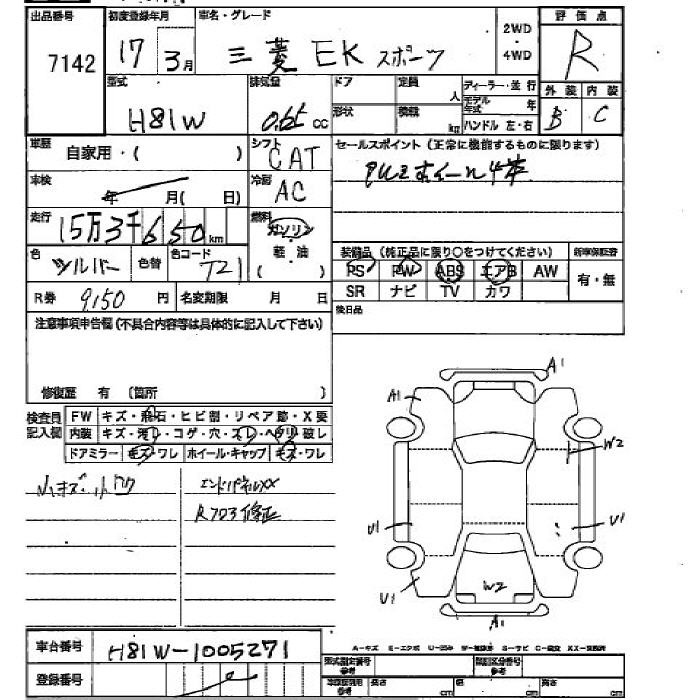 出品番号 初度登録年月 車名・グレード 2WD 評価点
7142 17 3月 三菱 EK スポーツ ・4WD R
型式 排気量 ドア 定員 人 ディーラー・並行 外装 内装
H81W 0.65 cc 形状 積載 kg モデル年式 年 B C
ハンドル 左・右
車歴 自家用・( ) シフト CAT セールスポイント(正常に機能するものに限ります)
車検 年 月(日) 冷房 AC アルミホイール4本
走行 15万3千650km 燃料 ガソリン
軽・油
( )
色 シルバー 色替 色コード T21 装備品(純正品に限り○をつけてください) 新車保証書
PS PW ABS エアB AW 有・無
R券 9,150 円 名変期限 月 日 SR ナビ TV カワ
注意事項申告欄(不具合内容等は具体的に記入して下さい) 後日品
修復歴 有(箇所 )
検査員記入欄 FW キズ・飛石・ヒビ割・リペア跡・X要
内装 キズ・汚レ・コゲ・穴・スレ・ヘタリ 破レ
ドアミラー キズ・ワレ ホイール・キャップ キズ・ワレ
小キズ・小凹 エンドパネルXX
R703修正
A1
A1
W2
U1 U1
W2
U1
A1
A-キズ E-エクボ U-凹み
車台番号 H81W-1005271
登録番号
型式指定番号 参考 類別区分番号 参考
長さ cm 幅 cm 高さ cm